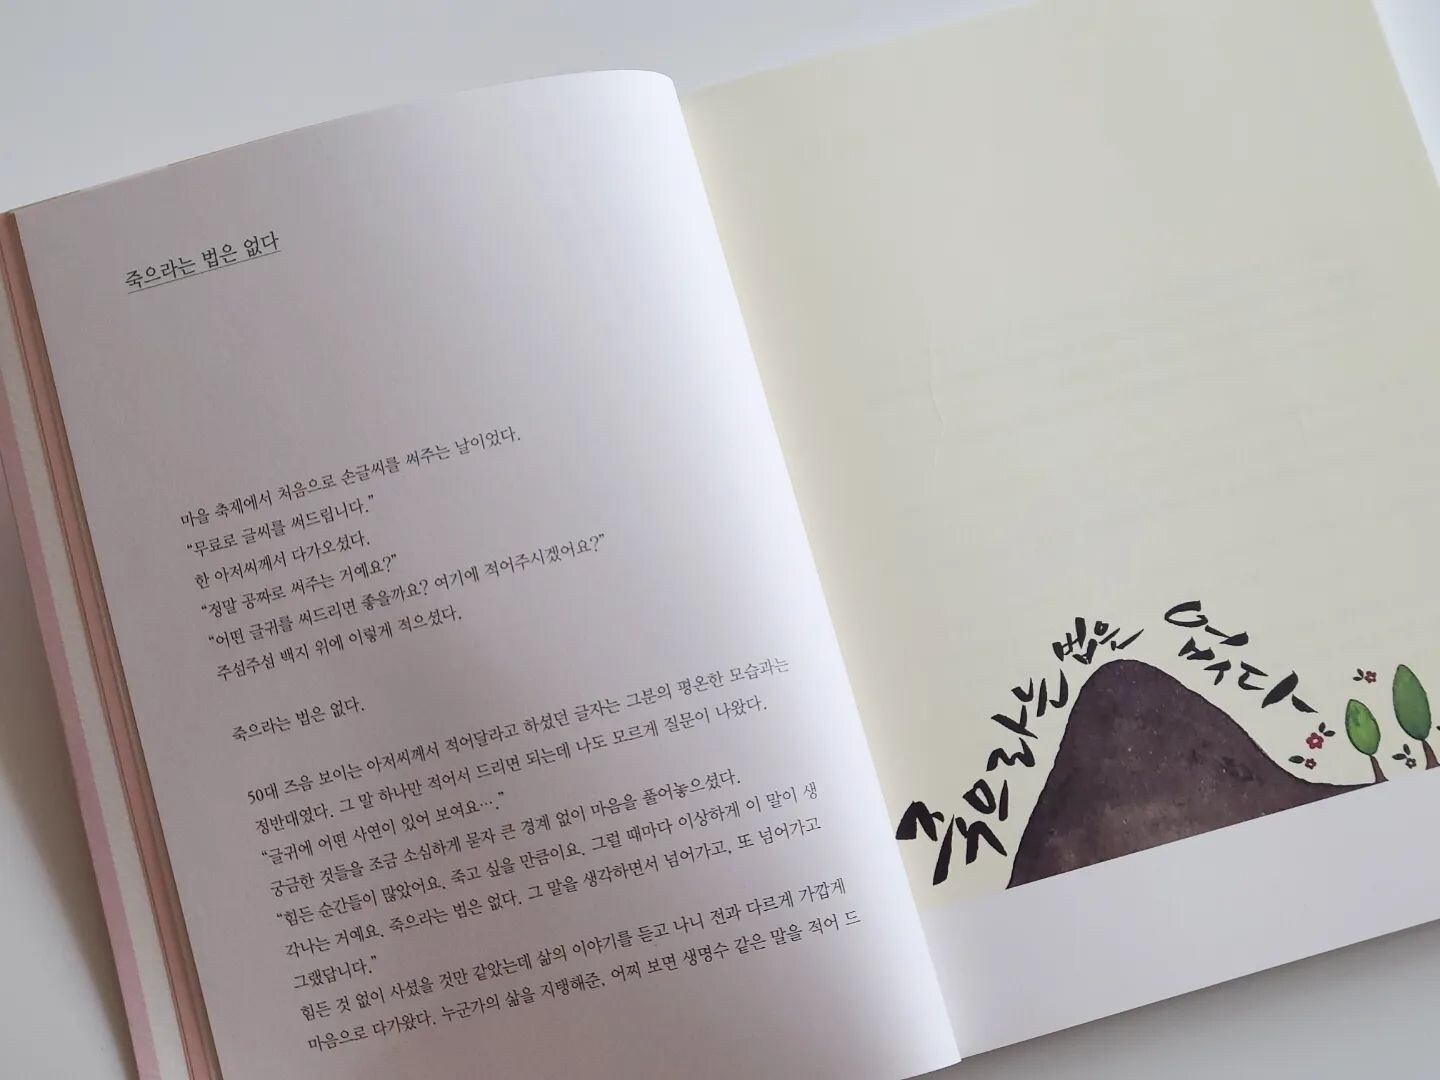 죽으라는 법은 없다
마을 축제에서 처음으로 손글씨를 써주는 날이었다.
“무료로 글씨를 써드립니다.”
한 아저씨께서 다가오셨다.
“정말 공짜로 써주는 거예요?”
“어떤 글귀를 써드리면 좋을까요? 여기에 적어주시겠어요?”
주섬주섬 백지 위에 이렇게 적으셨다.
죽으라는 법은 없다.
50대 즈음 보이는 아저씨께서 적어달라고 하셨던 글자는 그분의 평온한 모습과는
정반대였다. 그 말 하나만 적어서 드리면 되는데 나도 모르게 질문이 나왔다.
“글귀에 어떤 사연이 있어 보여요….”
궁금한 것들을 조금 소심하게 묻자 큰 경계 없이 마음을 풀어놓으셨다.
“힘든 순간들이 많았어요. 죽고 싶을 만큼이요. 그럴 때마다 이상하게 이 말이 생
각나는 거예요. 죽으라는 법은 없다. 그 말을 생각하면서 넘어가고, 또 넘어가고
그랬답니다.”
힘든 것 없이 사셨을 것만 같았는데 삶의 이야기를 듣고 나니 전과 다르게 가깝게
마음으로 다가왔다. 누군가의 삶을 지탱해준, 어찌 보면 생명수 같은 말을 적어 드
죽으라는 법은 없다